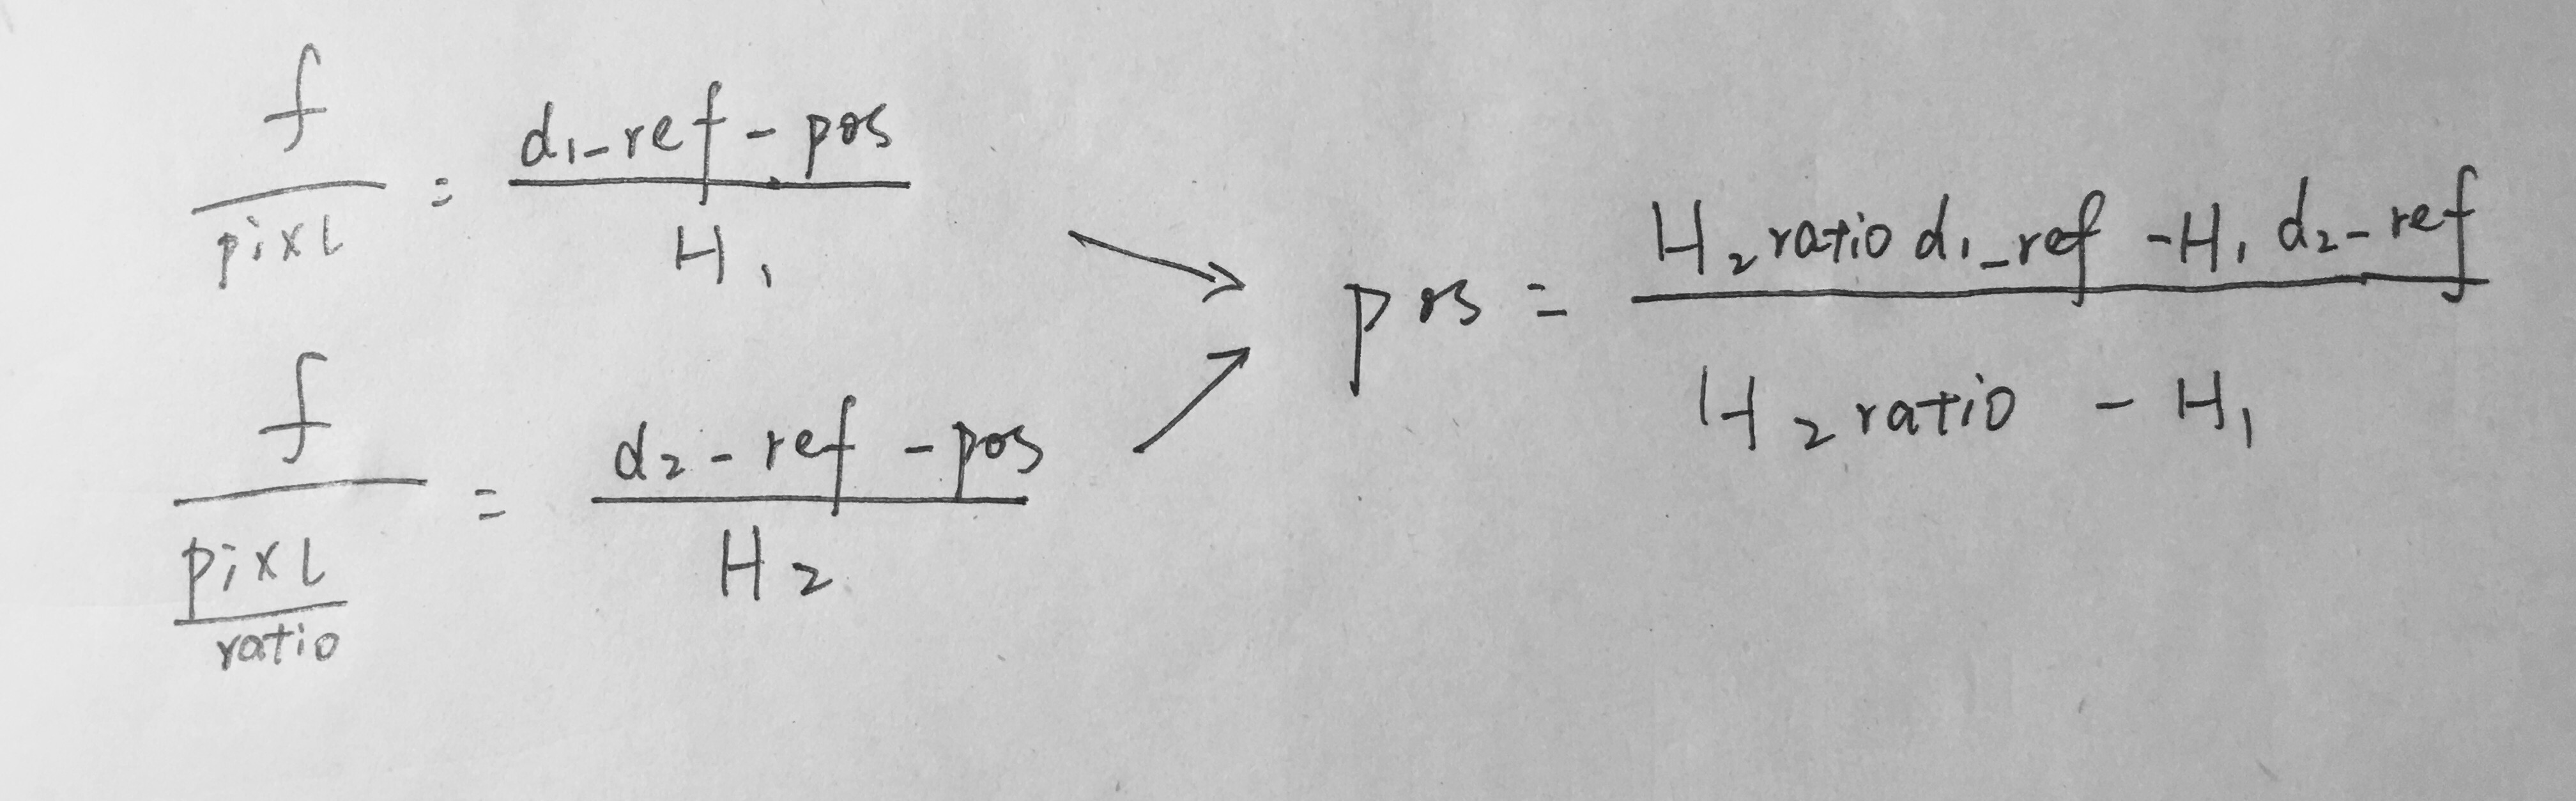 f / pixl = d₁_ref - pos / H₁
f / pixl / ratio = d₂-ref - pos / H₂
pos = H₂ ratio d₁_ref - H₁ d₂-ref / H₂ ratio - H₁